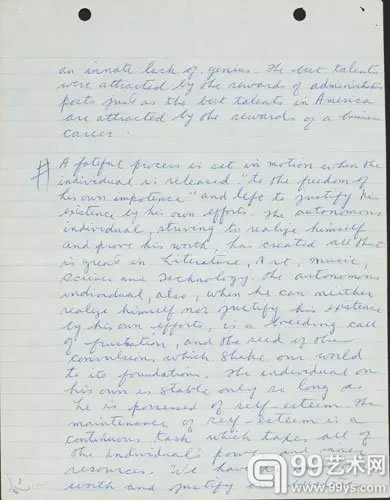 an innate lack of genius. The best talents
were attracted by the rewards of administrative
posts just as the best talents in America
are attracted by the rewards of a business
career.
# A fateful process is set in motion when the
individual is released "to the freedom of
his own impotence" and left to justify his
existence by his own efforts. The autonomous
individual, striving to realize himself
and prove his worth, has created all that
is great in Literature, Art, Music,
Science and Technology. The autonomous
individual, also, when he can neither
realize himself nor justify his existence
by his own efforts, is a breeding cell
of frustration, and the seed of the
convulsions which shake our world
to its foundations. The individual on
his own is stable only so long as
he is possessed of self-esteem. The
maintenance of self-esteem is a
continuous task which taxes all of
the individual's power and inner
resources. We have
worth and justify
99艺术网
99ys.com